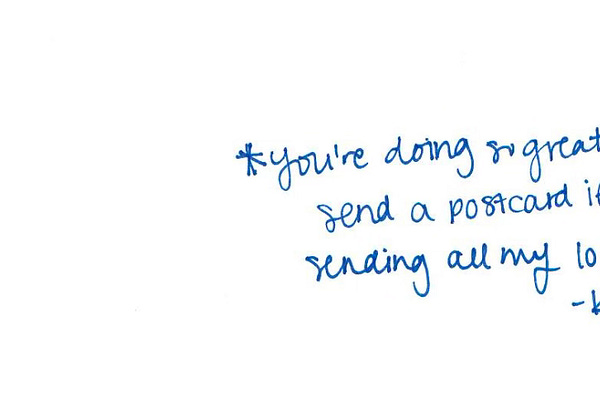 *you're doing so great
send a postcard if
sending all my lo
-k